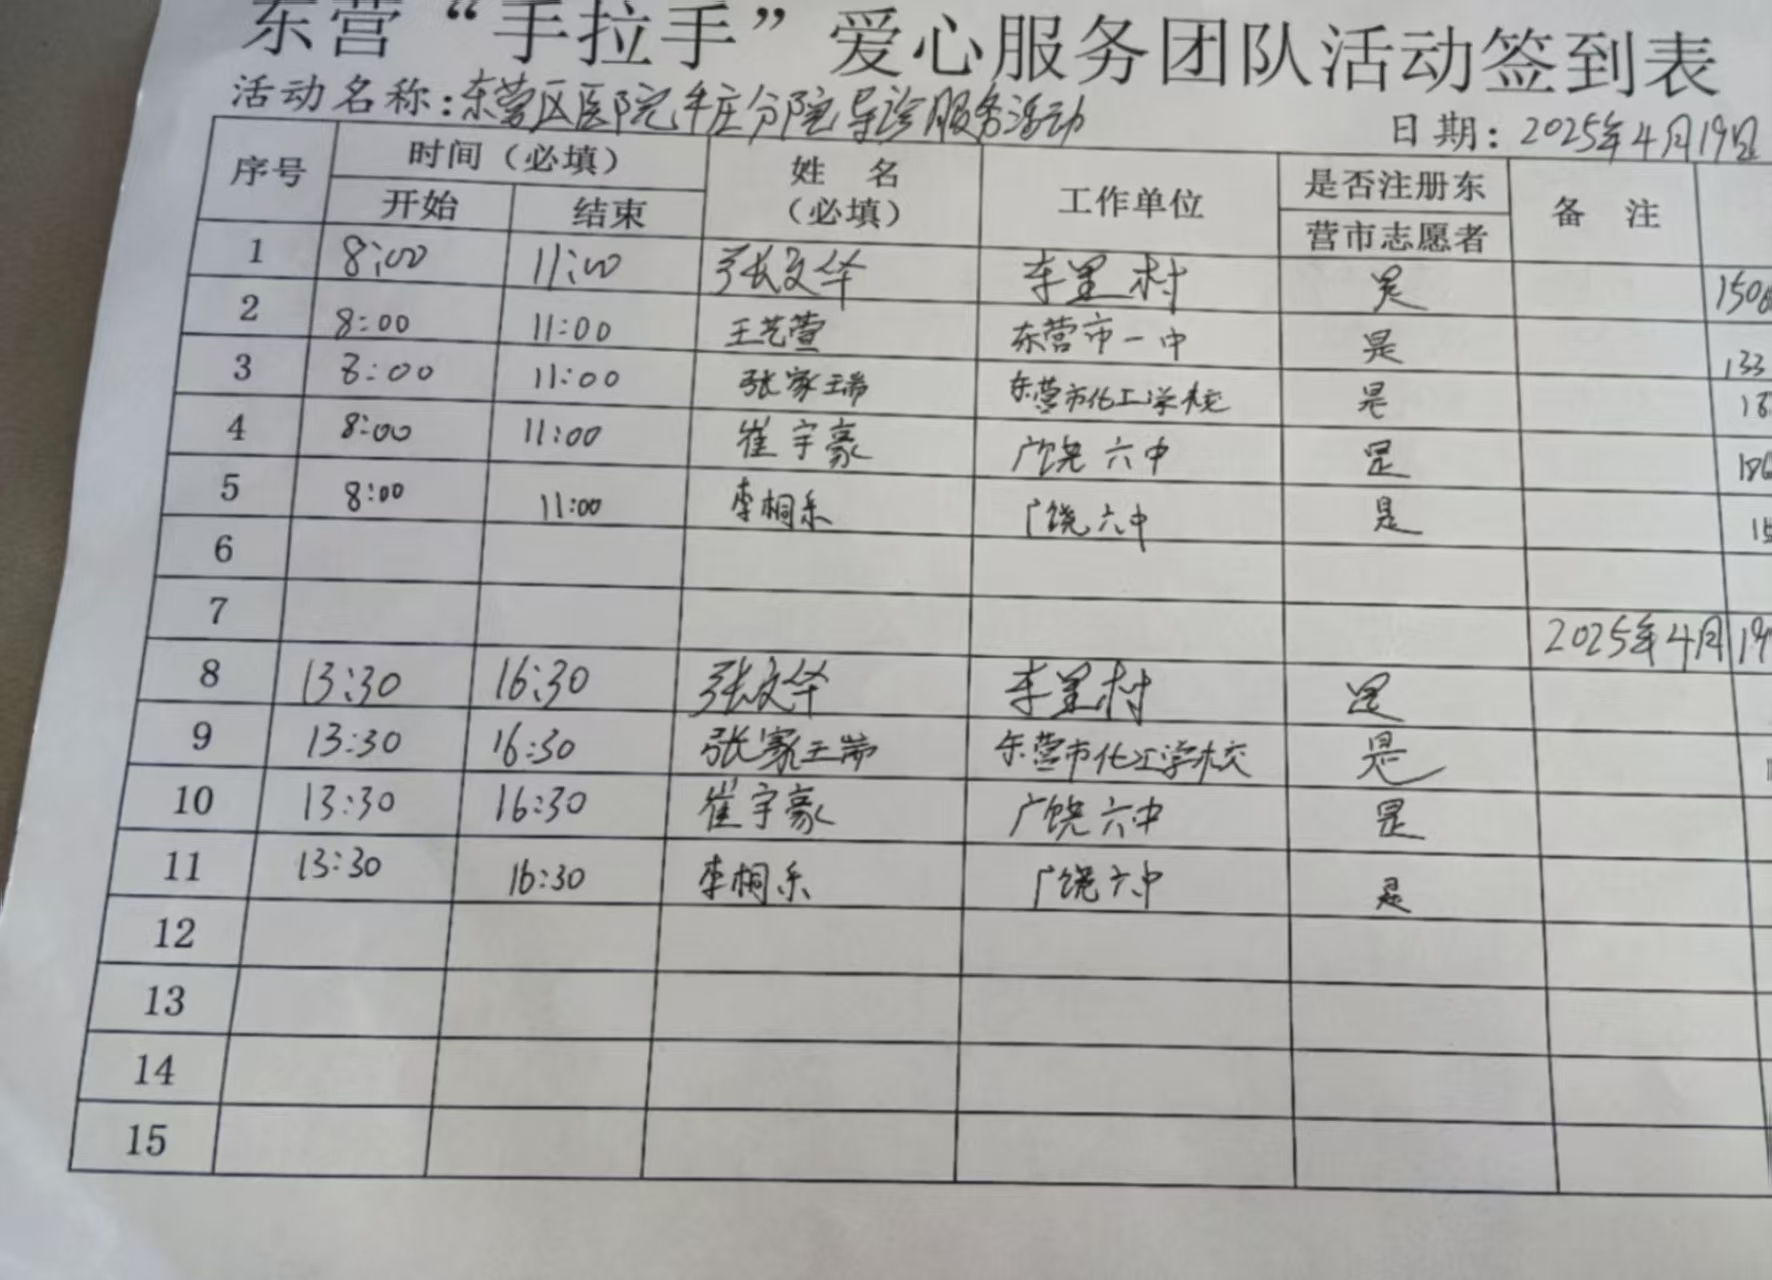 东营“手拉手”爱心服务团队活动签到表
活动名称：东营区医院牛庄分院导诊服务活动 日期：2025年4月19日
序号 时间（必填） 姓 名（必填） 工作单位 是否注册东营市志愿者 备 注
开始 结束
1 8:00 11:00 张文华 车里村 是 150
2 8:00 11:00 王艺萱 东营市一中 是 133
3 8:00 11:00 张家瑞 东营市化工学校 是 18
4 8:00 11:00 崔宇豪 广饶六中 是 186
5 8:00 11:00 李桐乐 广饶六中 是 15
6
7 2025年4月19
8 13:30 16:30 张文华 车里村 是
9 13:30 16:30 张家瑞 东营市化工学校 是
10 13:30 16:30 崔宇豪 广饶六中 是
11 13:30 16:30 李桐乐 广饶六中 是
12
13
14
15